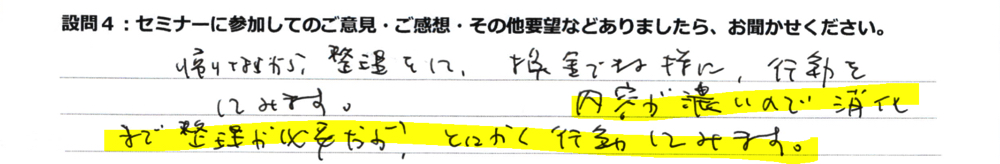 設問4:セミナーに参加してのご意見・ご感想・その他要望などありましたら、お聞かせください。
帰りてまから整理をして、換金でね様に、行動を
してみます。 内容が濃いので消化
まで整理が必要だが、とにかく行動してみます。